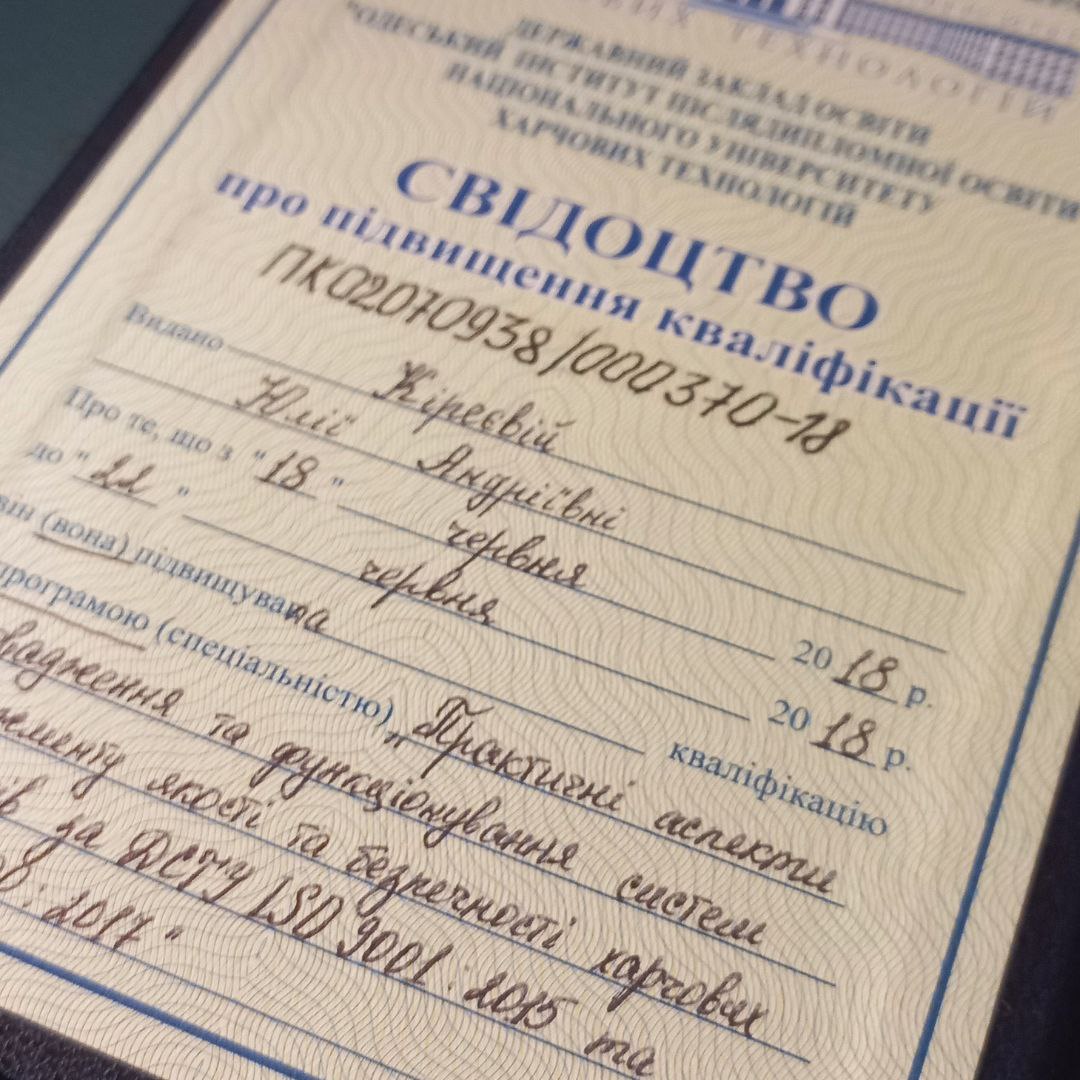 ВИХ ТЕХНОЛОГІЙ
ДЕРЖАВНИЙ ЗАКЛАД ОСВІТИ
"ОДЕСЬКИЙ ІНСТИТУТ ПІСЛЯДИПЛОМНОЇ ОСВІТИ
НАЦІОНАЛЬНОГО УНІВЕРСИТЕТУ
ХАРЧОВИХ ТЕХНОЛОГІЙ
СВІДОЦТВО
про підвищення кваліфікації
ПК02070938/000370-18
Видано Кіреєвій
Юлії Андріївні
Про те, що з "18" червня 2018 р.
до "22" червня 2018 р.
він (вона) підвищувала кваліфікацію
програмою (спеціальністю) „Практичні аспекти
вадження та функціонування систем
ементу якості та безпечності харчових
ів за ДСТУ ISO 9001:2015 та
:2017"